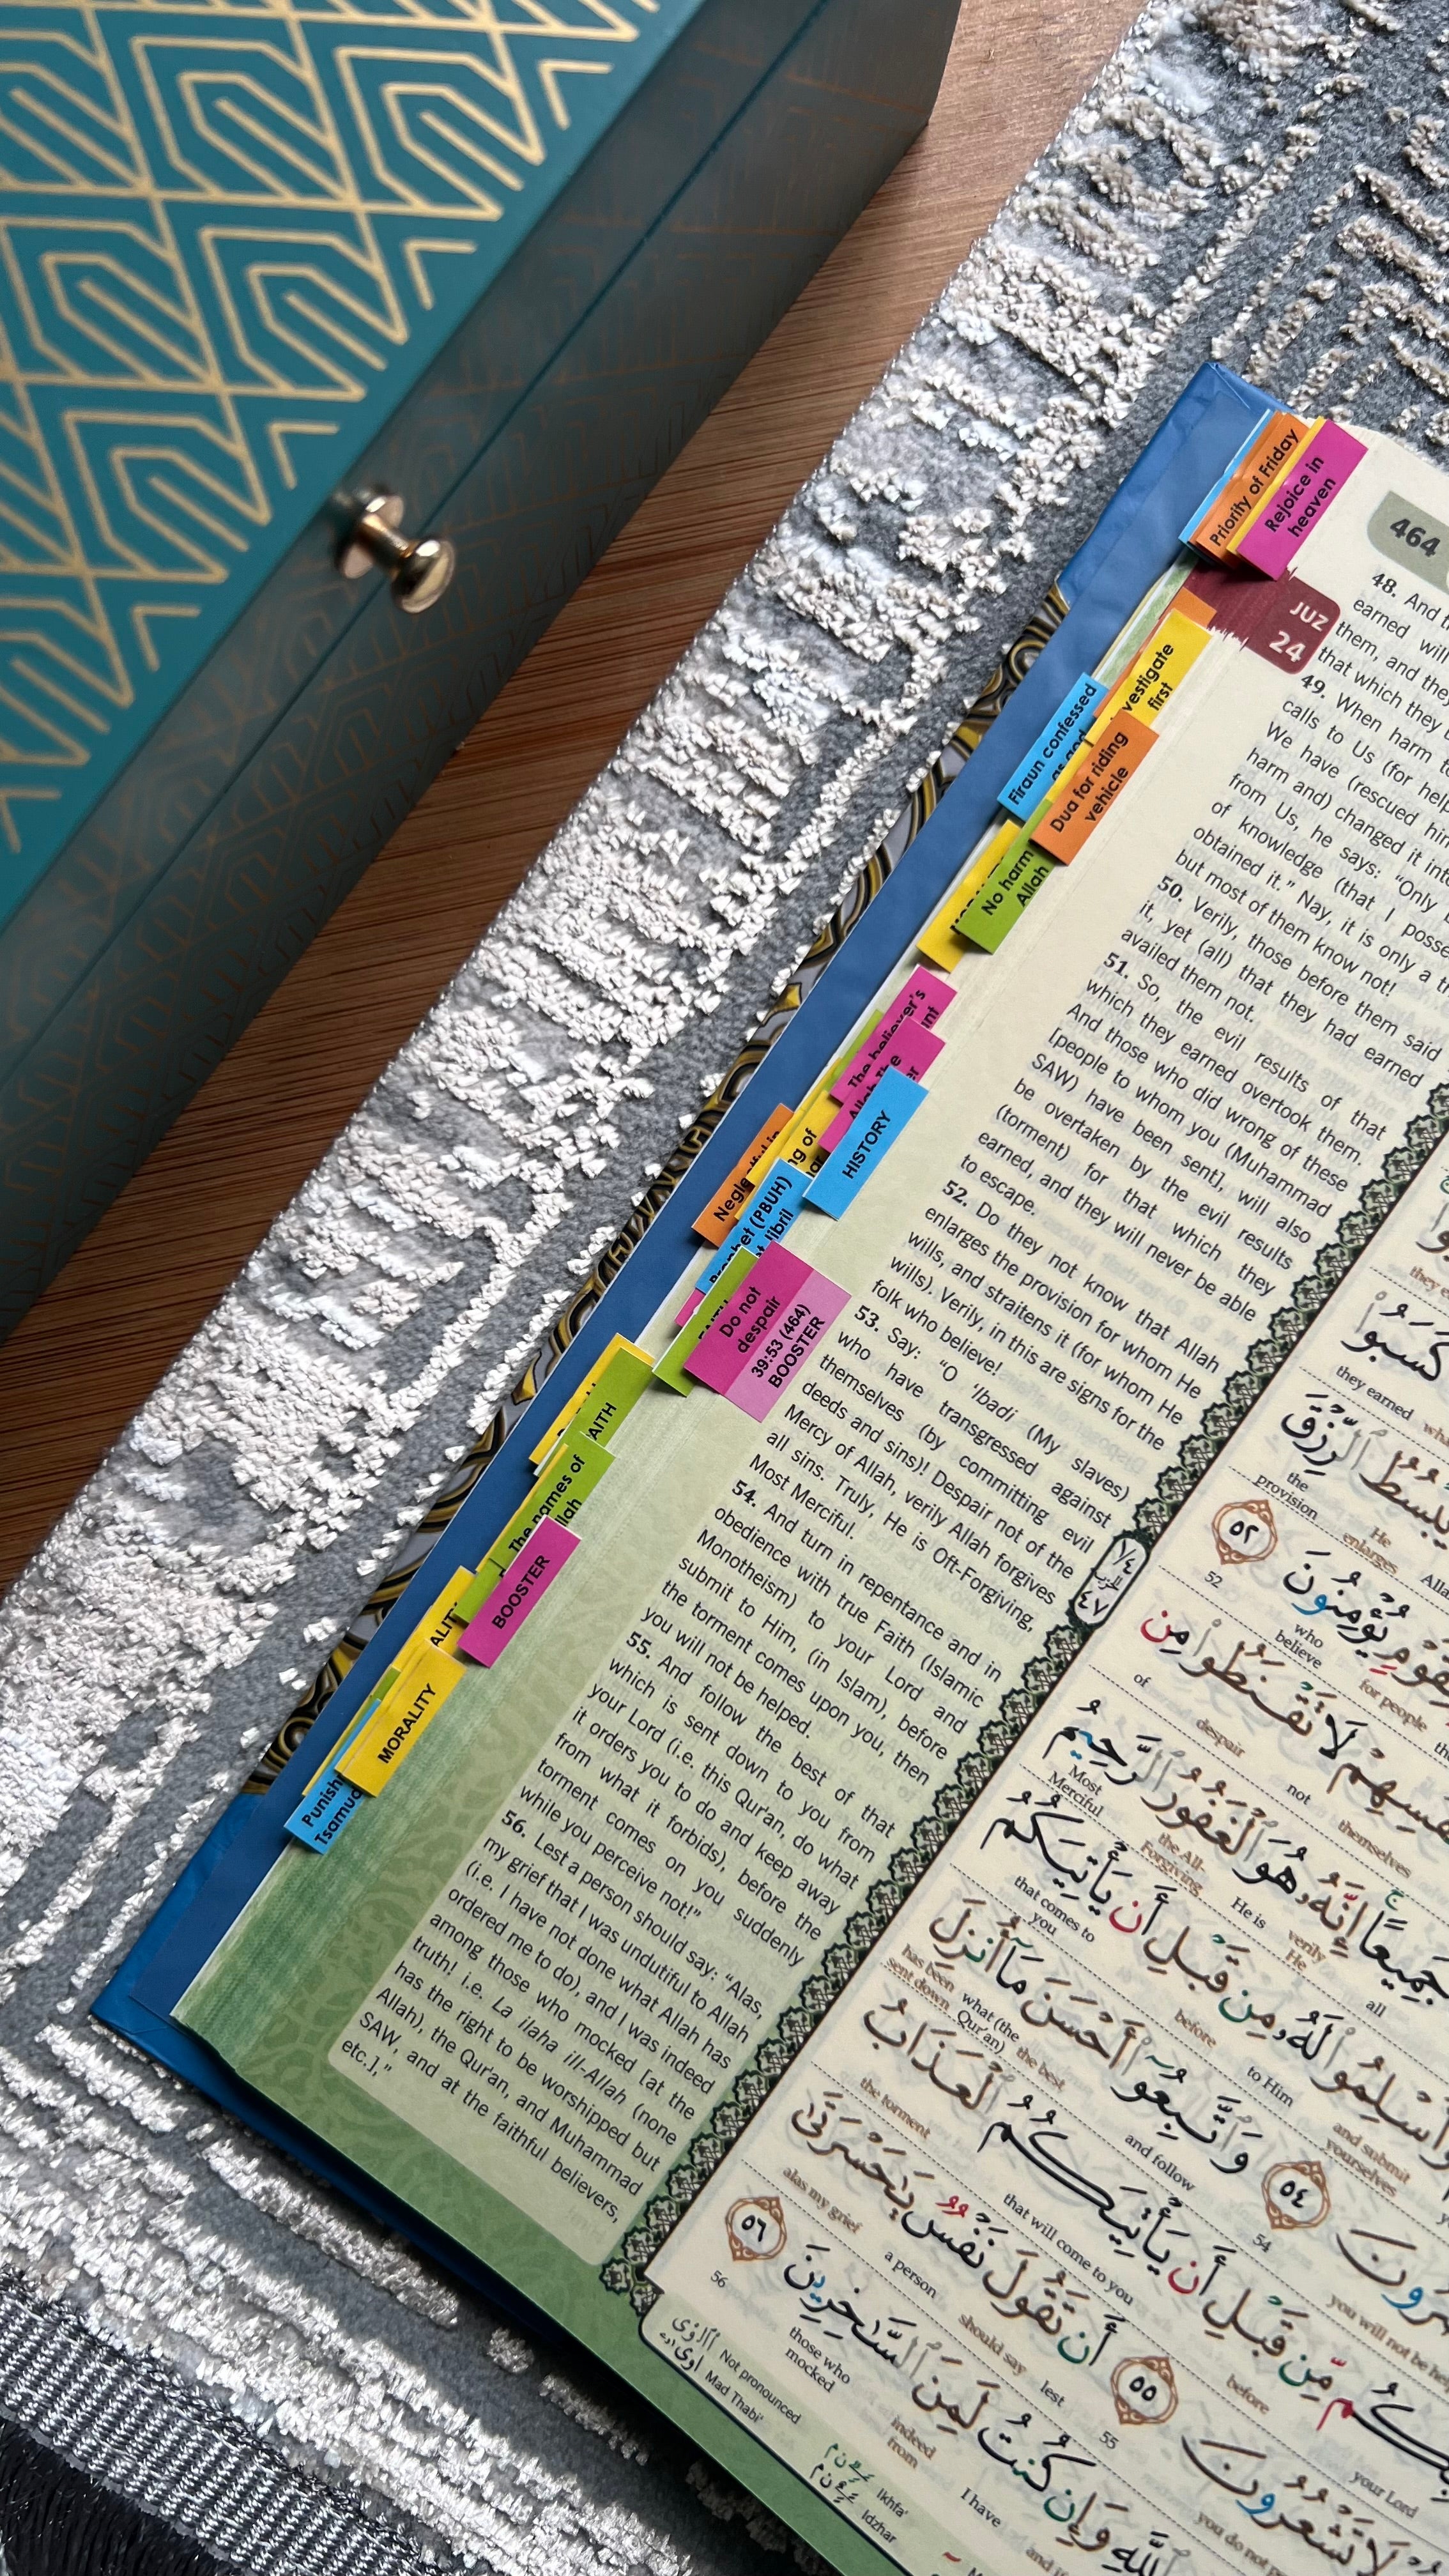 Priority of Friday
Rejoice in
heaven
464
JUZ
24
vestigate
first
Firaun confessed
as god
Dua for riding
vehicle
No harm
Allah
The believer's
nt
Allah the
er
HISTORY
ng of
Prophet (PBUH)
t Jibril
FAITH
Do not
despair
39:53 (464)
BOOSTER
AITH
The names of
llah
BOOSTER
ALIT
MORALITY
Punish
Tsamud
48. And
earned will
them, and they
that which they
49. When harm
calls to Us (for help
We have (rescued him
harm and) changed it into
from Us, he says: "Only
of knowledge (that I posse
obtained it." Nay, it is only a
but most of them know not!
50. Verily, those before them said
it, yet (all) that they had earned
availed them not.
51. So, the evil results of that
which they earned overtook them.
And those who did wrong of these
[people to whom you (Muhammad
SAW) have been sent], will also
be overtaken by the evil results
(torment) for that which they
earned, and they will never be able
to escape.
52. Do they not know that Allah
enlarges the provision for whom He
wills, and straitens it (for whom He
wills). Verily, in this are signs for the
folk who believe!
53. Say: "O 'Ibadi (My slaves)
who have transgressed against
themselves (by committing evil
deeds and sins)! Despair not of the
Mercy of Allah, verily Allah forgives
all sins. Truly, He is Oft-Forgiving,
Most Merciful.
54. And turn in repentance and in
obedience with true Faith (Islamic
Monotheism) to your Lord and
submit to Him, (in Islam), before
the torment comes upon you, then
you will not be helped.
55. And follow the best of that
which is sent down to you from
your Lord (i.e. this Qur'an, do what
it orders you to do and keep away
from what it forbids), before the
torment comes on you suddenly
while you perceive not!"
56. Lest a person should say: "Alas,
my grief that I was undutiful to Allah
(i.e. I have not done what Allah has
ordered me to do), and I was indeed
among those who mocked [at the
truth! i.e. La ilaha ill-Allah (none
has the right to be worshipped but
Allah), the Qur'an, and Muhammad
SAW, and at the faithful believers,
etc.],"
كَسَبُوا۟
they earned
يَبْسُطُ ٱلرِّزْقَ
He enlarges
the provision
لِّقَوْمٍ يُؤْمِنُونَ ٥٢
for people
who believe
52
لَا تَقْنَطُوا۟ مِن
themselves
not
despair
of
جَمِيعًا إِنَّهُۥ هُوَ ٱلْغَفُورُ ٱلرَّحِيمُ
all
verily He
He is
the All-Forgiving
Most Merciful
لَهُۥ مِن قَبْلِ أَن يَأْتِيَكُمُ
and submit yourselves
to Him
before
that comes to you
٥٤ وَٱتَّبِعُوٓا۟ أَحْسَنَ مَآ أُنزِلَ
54
and follow
the best
what (the Qur'an)
has been sent down
مِّن قَبْلِ أَن يَأْتِيَكُمُ ٱلْعَذَابُ
your Lord
before
that will come to you
the torment
لَا تَشْعُرُونَ ٥٥ أَن تَقُولَ نَفْسٌ يَٰحَسْرَتَىٰ
you do not
55
lest
should say
a person
alas my grief
ٱللَّهِ وَإِن كُنتُ لَمِنَ ٱلسَّٰخِرِينَ ٥٦
I have
indeed from
those who mocked
56
Not pronounced
Mad Thabi'
Ikhfa'
Idzhar